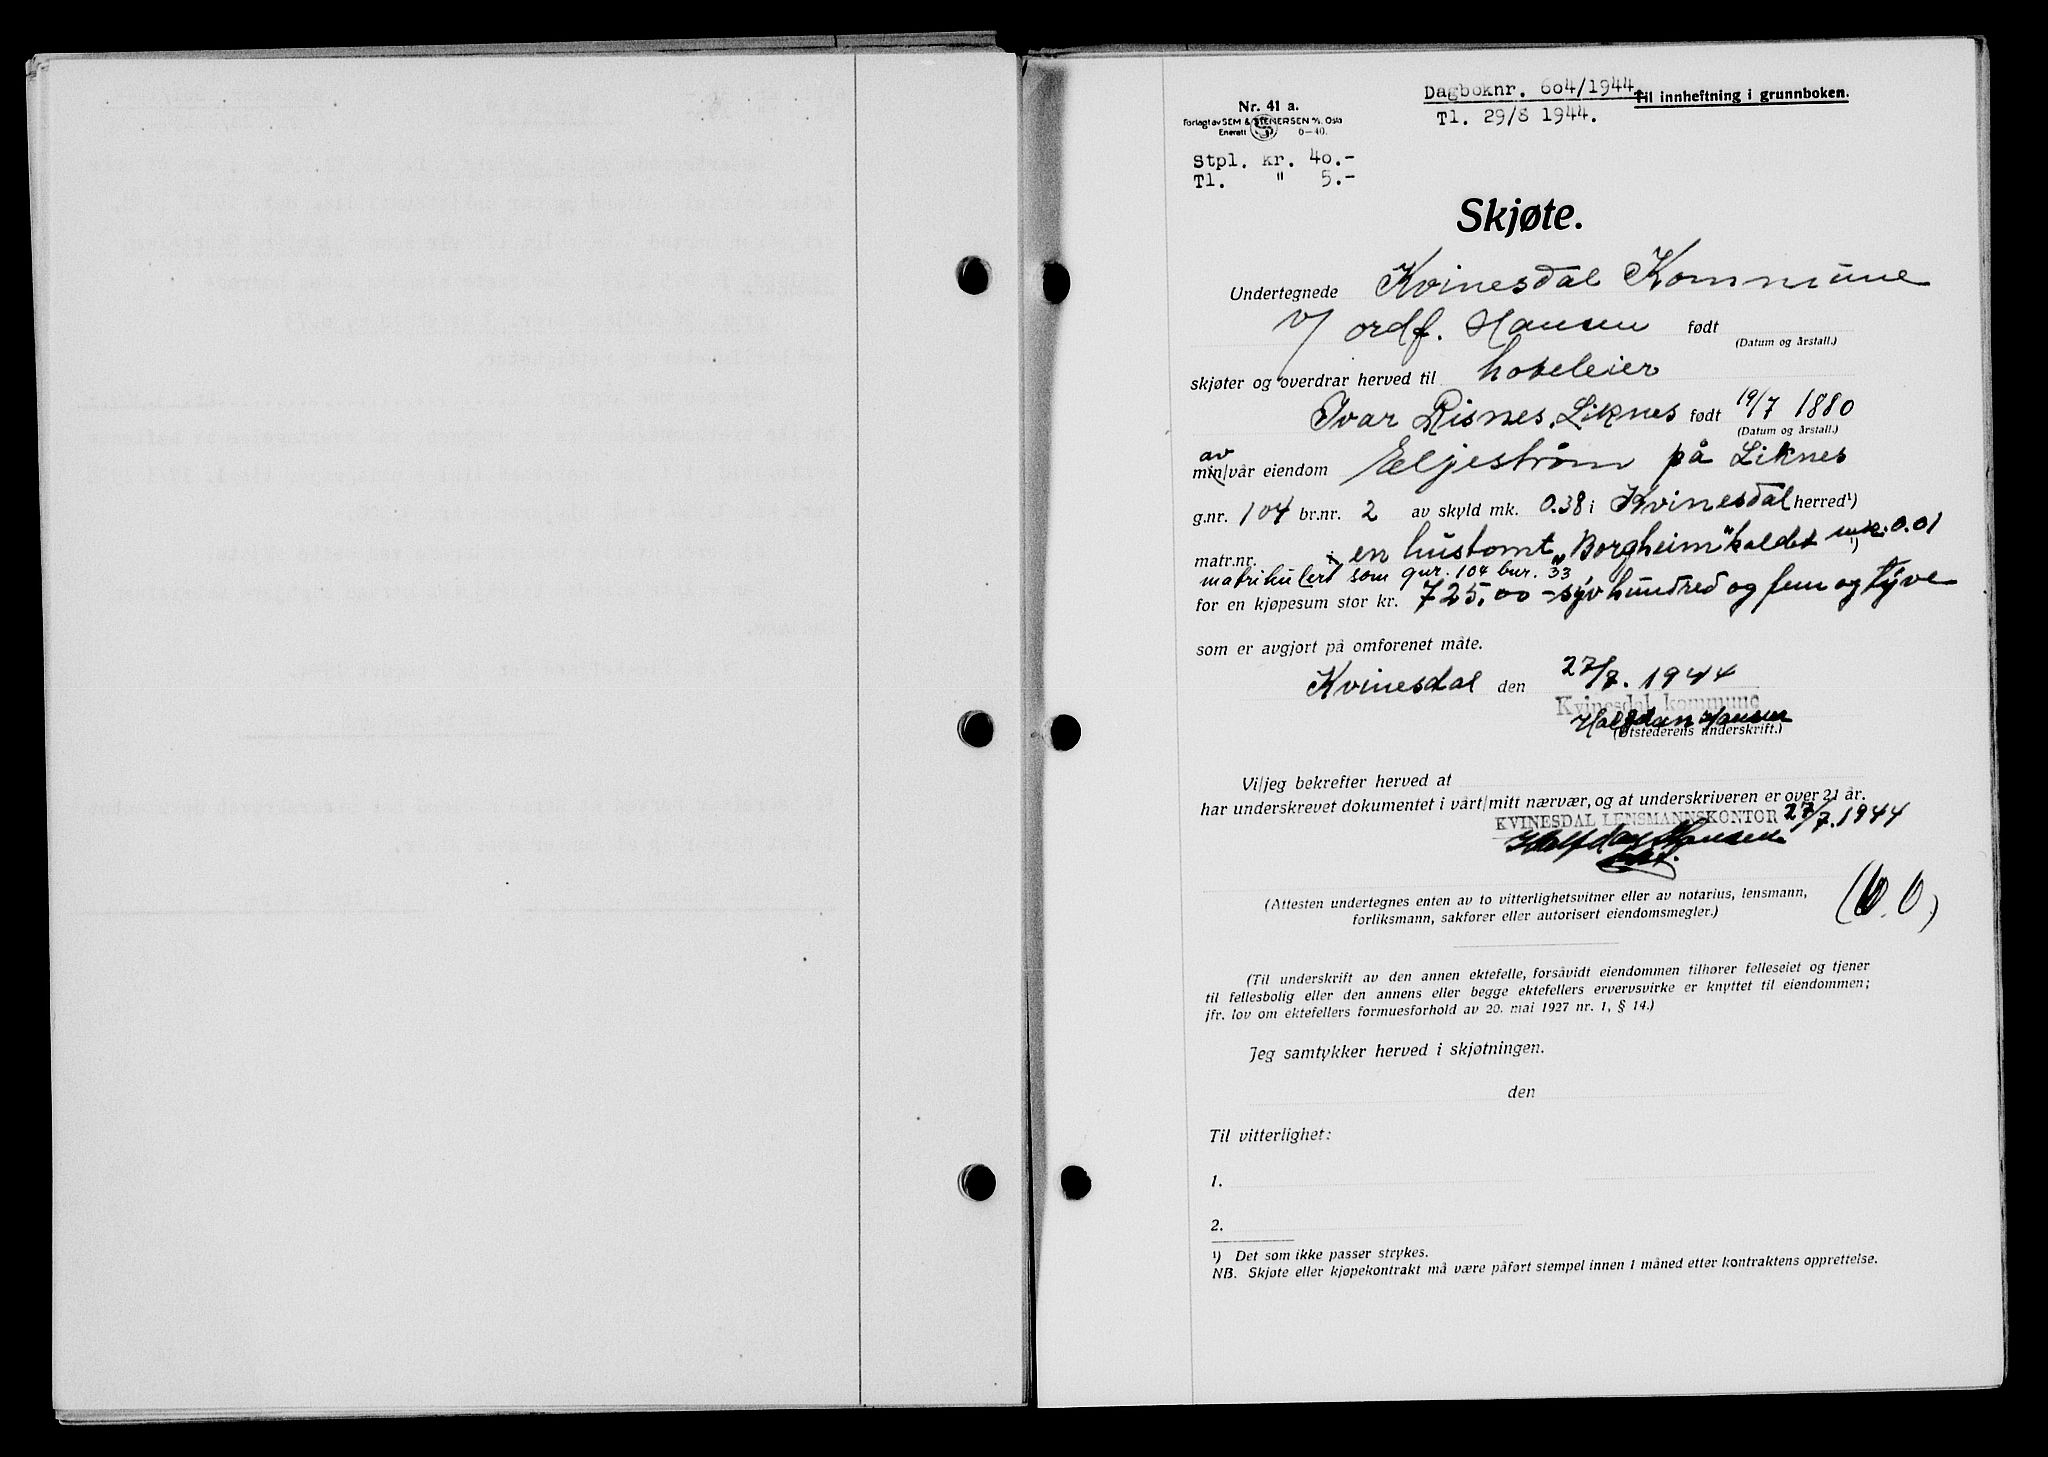 Nr. 41 a.
Forlagt av SEM & STENERSEN A/S, Oslo
Enerett 6-40.
Dagboknr. 604/1944.
Tl. 29/8 1944.
Til innheftning i grunnboken.
Stpl. kr. 40.-
Tl. " 5.-
Skjøte.
Undertegnede Kvinesdal Kommune
v/ ordf. Hansen født
(Datum og årstall.)
skjøter og overdrar herved til hoteleier
Ivar Risnes, Liknes født 19/7 1880
(Datum og årstall.)
av
min/vår eiendom Eljestrøm på Liknes
g.nr. 104 br.nr. 2 av skyld mk. 0.38 i Kvinesdal herred¹)
matr.nr. i en hustomt „Borgheim" kaldet mk. 0.01
matrikulert som gnr. 104 bnr. 33
for en kjøpesum stor kr. 725,00 - syvhundred og fem og tyve
som er avgjort på omforenet måte.
Kvinesdal den 27/7. 1944
Kvinesdal kommune
Halfdan Hansen
(Utstederens underskrift.)
Vi/jeg bekrefter herved at
har underskrevet dokumentet i vårt/mitt nærvær, og at underskriveren er over 21 år.
KVINESDAL LENSMANNSKONTOR 27/7. 1944
Halfdan Hansen
(Attesten undertegnes enten av to vitterlighetsvitner eller av notarius, lensmann,
forliksmann, sakfører eller autorisert eiendomsmegler.)
(Til underskrift av den annen ektefelle, forsåvidt eiendommen tilhører felleseiet og tjener
til fellesbolig eller den annens eller begge ektefellers ervervsvirke er knyttet til eiendommen;
jfr. lov om ektefellers formuesforhold av 20. mai 1927 nr. 1, § 14.)
Jeg samtykker herved i skjøtningen.
den
Til vitterlighet:
1.
2.
¹) Det som ikke passer strykes.
NB. Skjøte eller kjøpekontrakt må være påført stempel innen 1 måned etter kontraktens opprettelse.